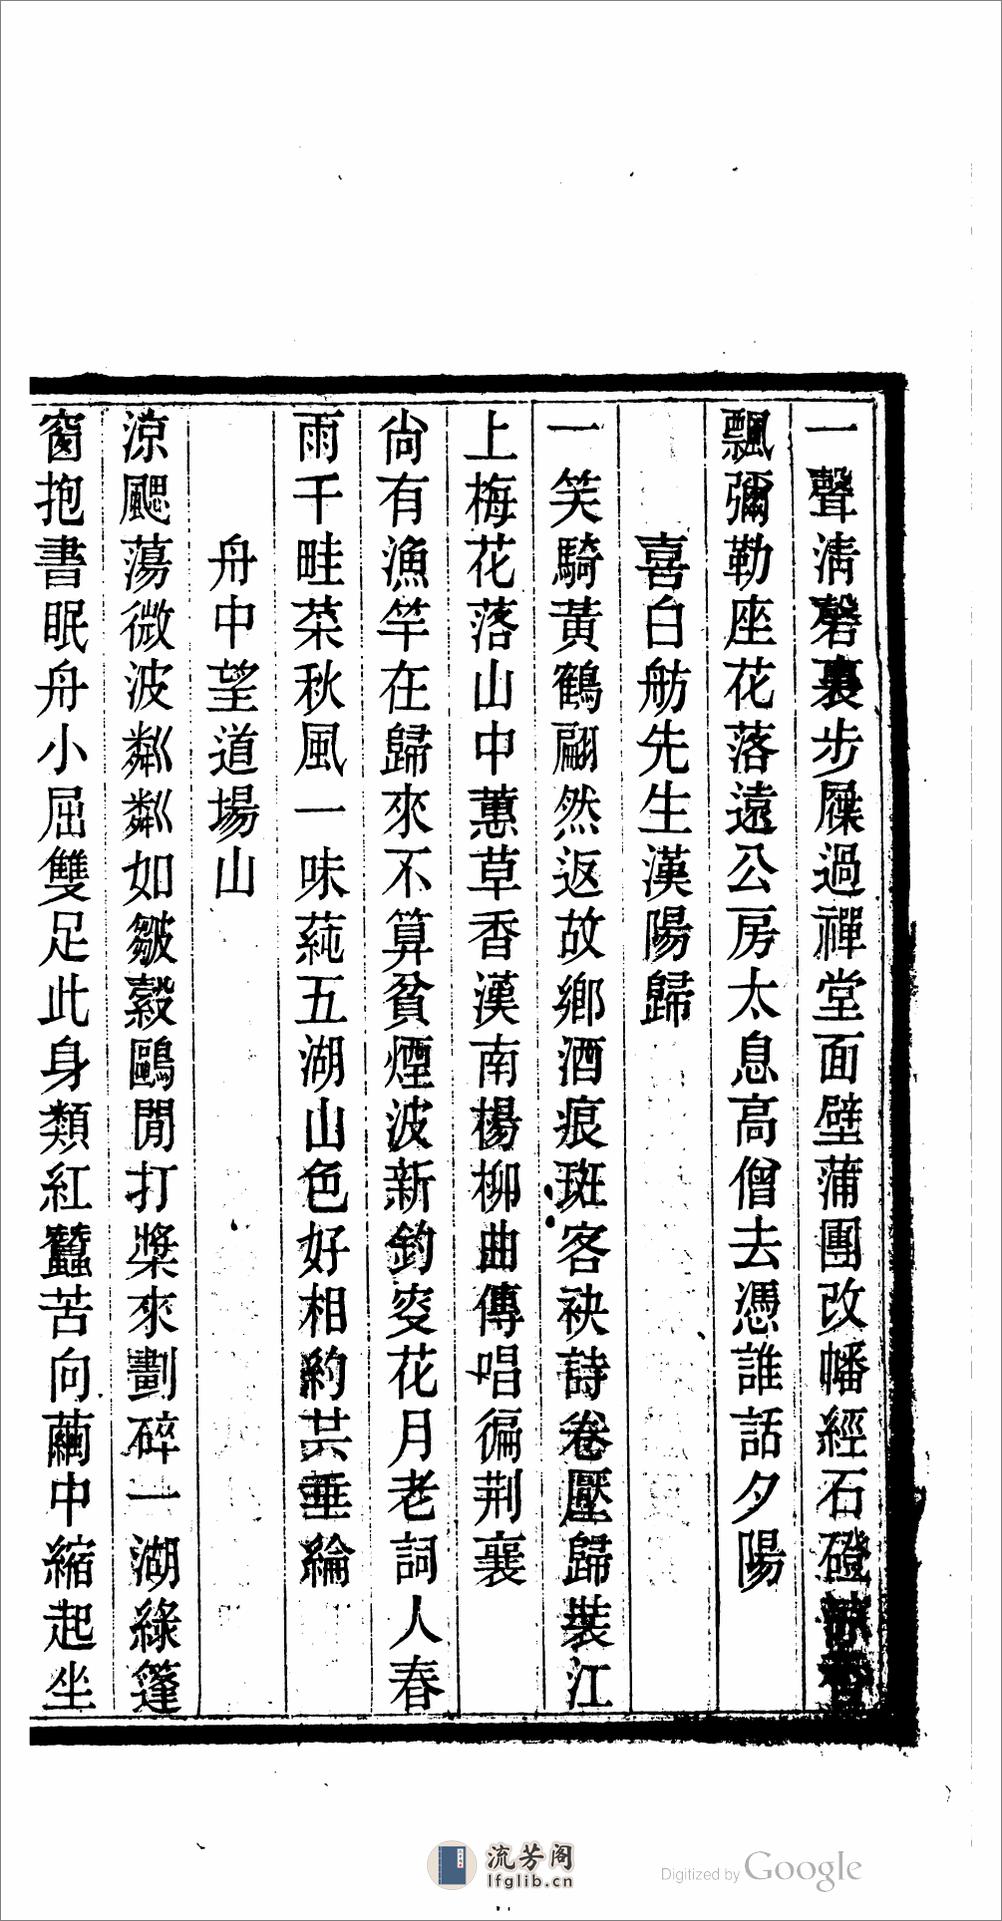 一聲淸磬裏步屧過禪堂面壁蒲團改幡經石磴
飄彌勒座花落遠公房太息高僧去憑誰話夕陽
喜白舫先生漢陽歸
一笑騎黃鶴翩然返故鄉酒痕斑客袂詩卷壓歸裝江
上梅花落山中蕙草香漢南楊柳曲傳唱徧荆襄
尙有漁竿在歸來不算貧煙波新釣叟花月老詞人春
雨千畦菜秋風一味蒓五湖山色好相約共垂綸
舟中望道場山
涼颸蕩微波粼粼如皺縠鷗閒打槳來劃碎一湖綠篷
窗抱書眠舟小屈雙足此身類紅蠶苦向繭中縮起坐
流芳阁
lfglib.cn
Digitized by Google